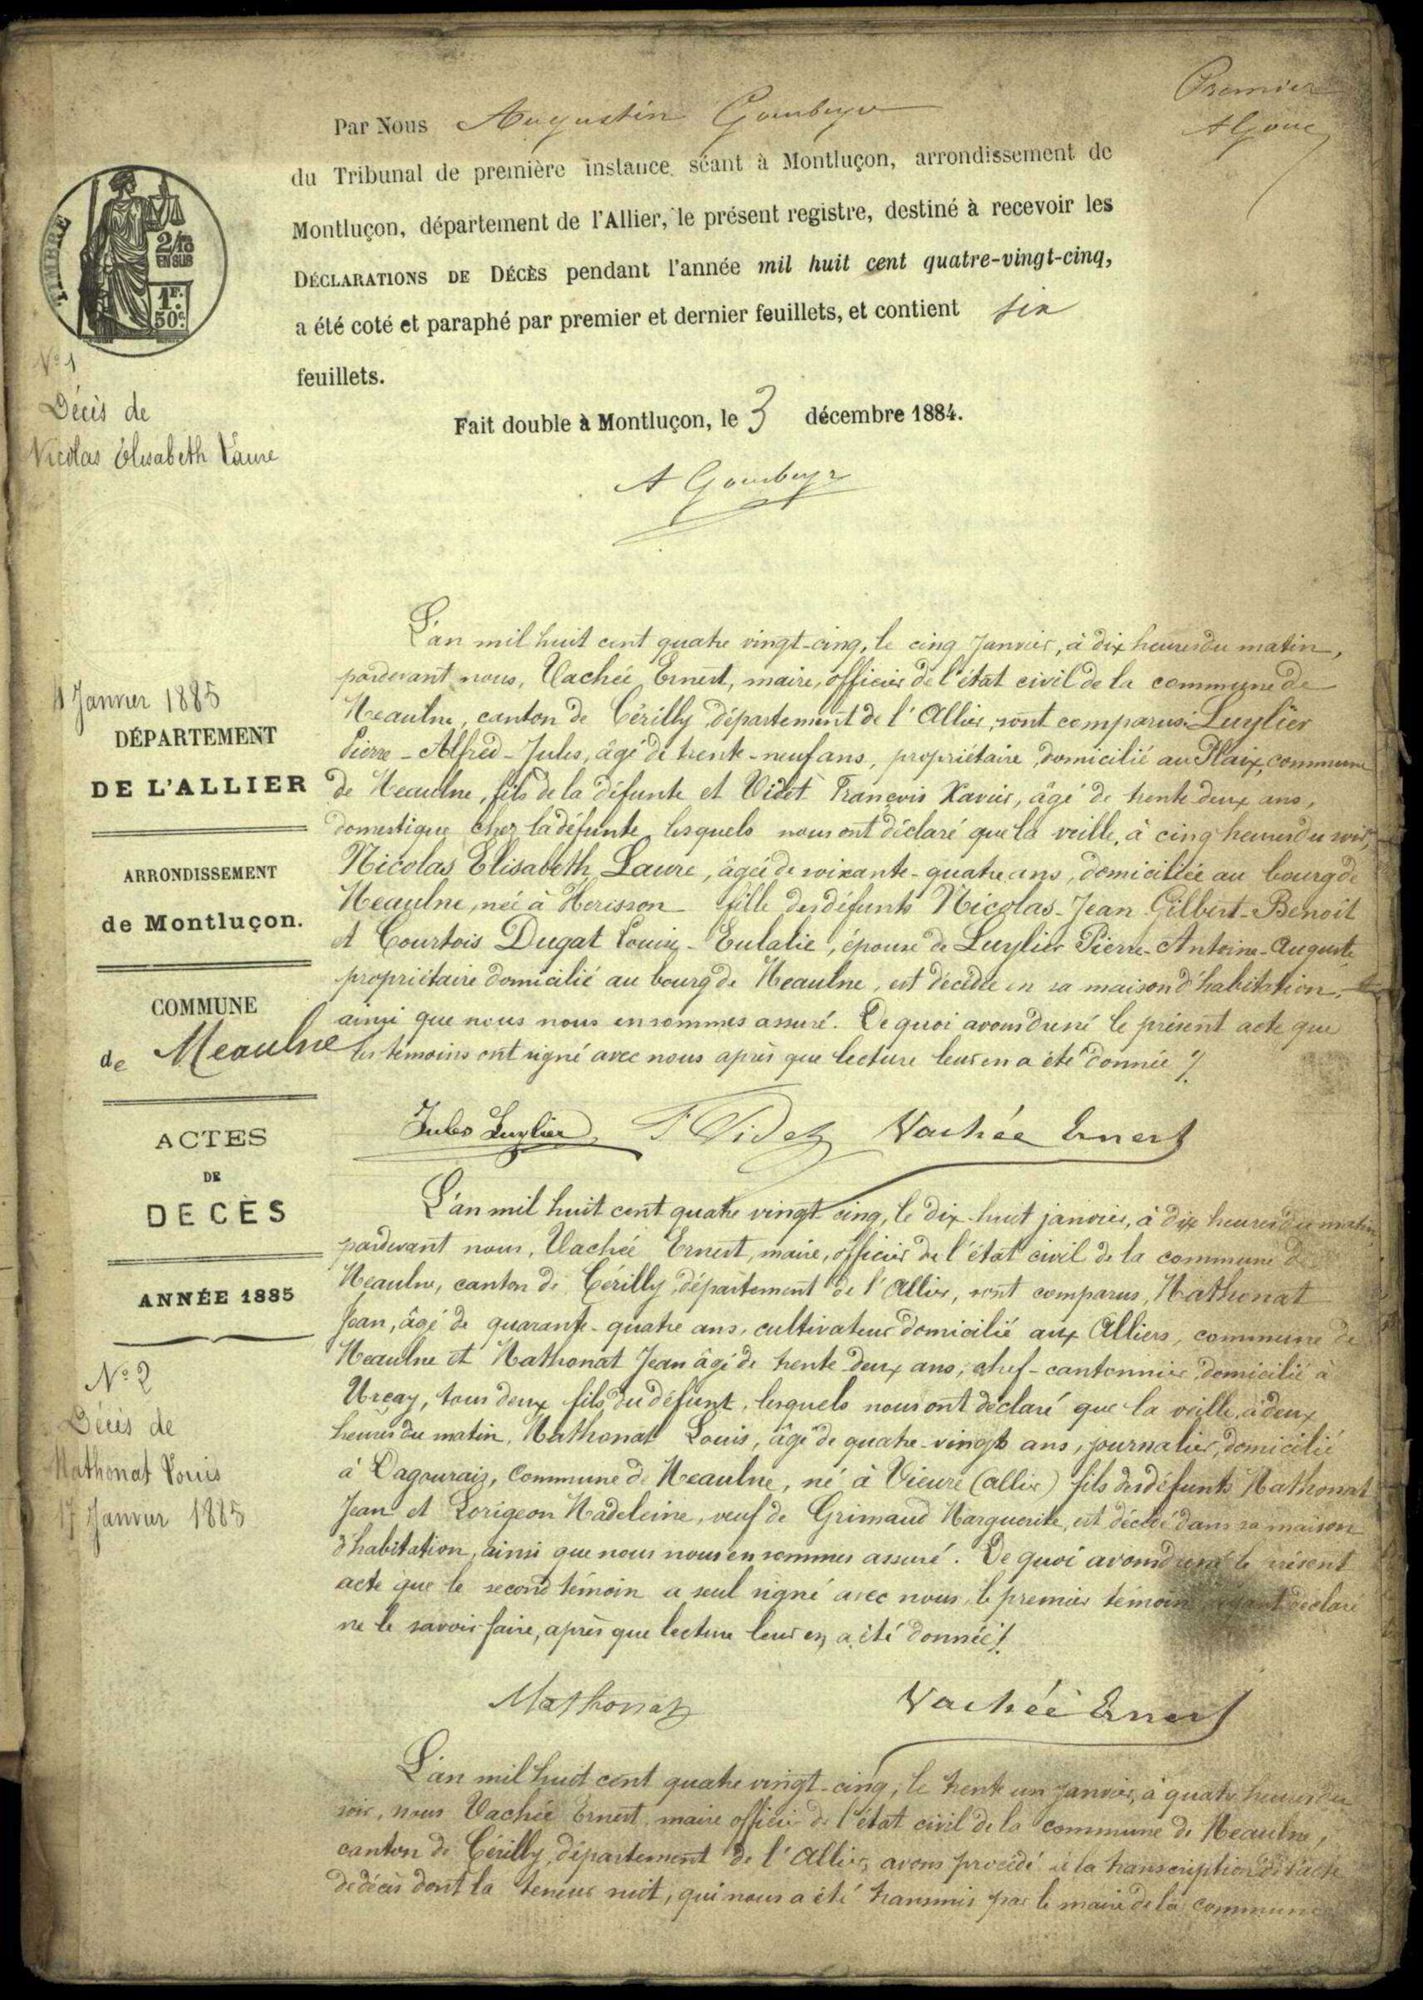 Premier
A Gou
Par Nous Augustin Gombeyr
du Tribunal de première instance séant à Montluçon, arrondissement de
Montluçon, département de l'Allier, le présent registre, destiné à recevoir les
DÉCLARATIONS DE DÉCÈS pendant l'année mil huit cent quatre-vingt-cinq,
a été coté et paraphé par premier et dernier feuillets, et contient six
feuillets.
Fait double à Montluçon, le 3 décembre 1884.
A Gombeyr
TIMBRE
2/10
EN SUS
1 F.
50 c.
N° 1
Décès de
Nicolas Elisabeth Laure
4 Janvier 1885
DÉPARTEMENT
DE L'ALLIER
ARRONDISSEMENT
de Montluçon.
COMMUNE
de Meaulne
ACTES
DE
DÉCÈS
ANNÉE 1885
L'an mil huit cent quatre vingt-cinq, le cinq Janvier, à dix heures du matin,
pardevant nous, Vachée Ernest, maire, officier de l'état civil de la commune de
Meaulne, canton de Cérilly, département de l'Allier, sont comparus: Luylier
Pierre-Alfred-Jules, âgé de trente-neuf ans, propriétaire, domicilié au Plaix, commune
de Meaulne, fils de la défunte et Videt François Xavier, âgé de trente deux ans,
domestique chez la défunte, lesquels nous ont déclaré que la veille, à cinq heures du soir,
Nicolas Elisabeth Laure, âgée de soixante-quatre ans, domiciliée au bourg de
Meaulne, née à Herisson fille des défunts Nicolas-Jean Gilbert-Benoît
et Courtois Dugat Louise-Eulalie, épouse de Luylier Pierre-Antoine-Auguste
propriétaire domicilié au bourg de Meaulne, est décédée en sa maison d'habitation,
ainsi que nous nous en sommes assuré. De quoi avons dressé le présent acte que
les témoins ont signé avec nous après que lecture leur en a été donnée
Jules Luylier F Videt Vachée Ernest
L'an mil huit cent quatre vingt-cinq, le dix-huit janvier, à dix heures du matin
pardevant nous, Vachée Ernest, maire, officier de l'état civil de la commune de
Meaulne, canton de Cérilly, département de l'Allier, sont comparus, Mathonat
Jean, âgé de quarante-quatre ans, cultivateur domicilié aux Alliers, commune de
Meaulne et Mathonat Jean âgé de trente deux ans, chef-cantonnier, domicilié à
Urçay, tous deux fils du défunt, lesquels nous ont déclaré que la veille, à deux
heures du matin, Mathonat Louis, âgé de quatre-vingts ans, journalier, domicilié
à Dagourais, Commune de Meaulne, né à Vieure (allier) fils des défunts Mathonat
Jean et Lorigeon Madeleine, veuf de Grimaud Marguerite, est décédé dans sa maison
d'habitation, ainsi que nous nous en sommes assuré. De quoi avons dressé le présent
acte que le second témoin a seul signé avec nous, le premier témoin ayant déclaré
ne le savoir faire, après que lecture leur en a été donnée
N° 2
Décès de
Mathonat Louis
17 Janvier 1885
Mathonat Vachée Ernest
L'an mil huit cent quatre vingt-cinq, le trente un janvier, à quatre heures du
soir, nous Vachée Ernest, maire officier de l'état civil de la commune de Meaulne,
canton de Cérilly, département de l'Allier, avons procédé à la transcription de l'acte
de décès dont la teneur suit, qui nous a été transmis par le maire de la commune